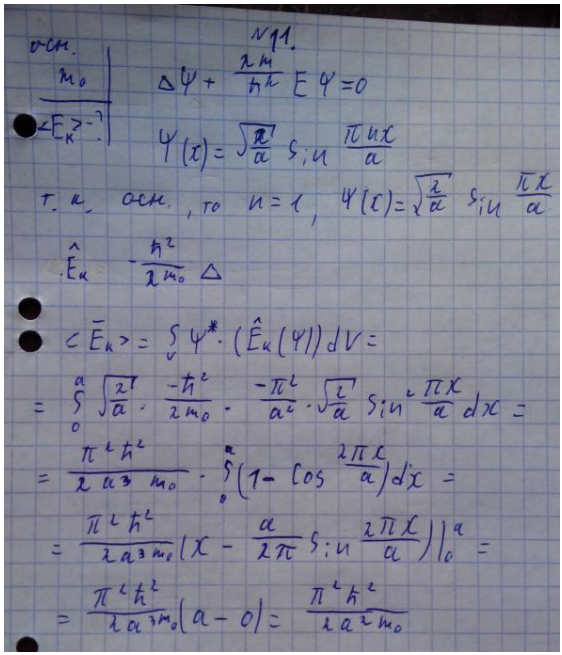 №11.
осн.
m₀
<Eₖ> - ?
ΔΨ + 2m/ħ² EΨ = 0
Ψ(x) = √(2/a) Sin πnx/a
т.к. осн., то n = 1, Ψ(x) = √(2/a) Sin πx/a
Êₖ - ħ²/2m₀ Δ
<Ēₖ> = ∫ᵥ Ψ* · (Êₖ(Ψ)) dV =
= ∫₀ᵃ √(2/a) · -ħ²/2m₀ · -π²/a² · √(2/a) Sin² πx/a dx =
= π²ħ²/2a³m₀ · ∫₀ᵃ (1 - Cos 2πx/a) dx =
= π²ħ²/2a³m₀ (x - a/2π Sin 2πx/a)|₀ᵃ =
= π²ħ²/2a³m₀ (a - 0) = π²ħ²/2a²m₀